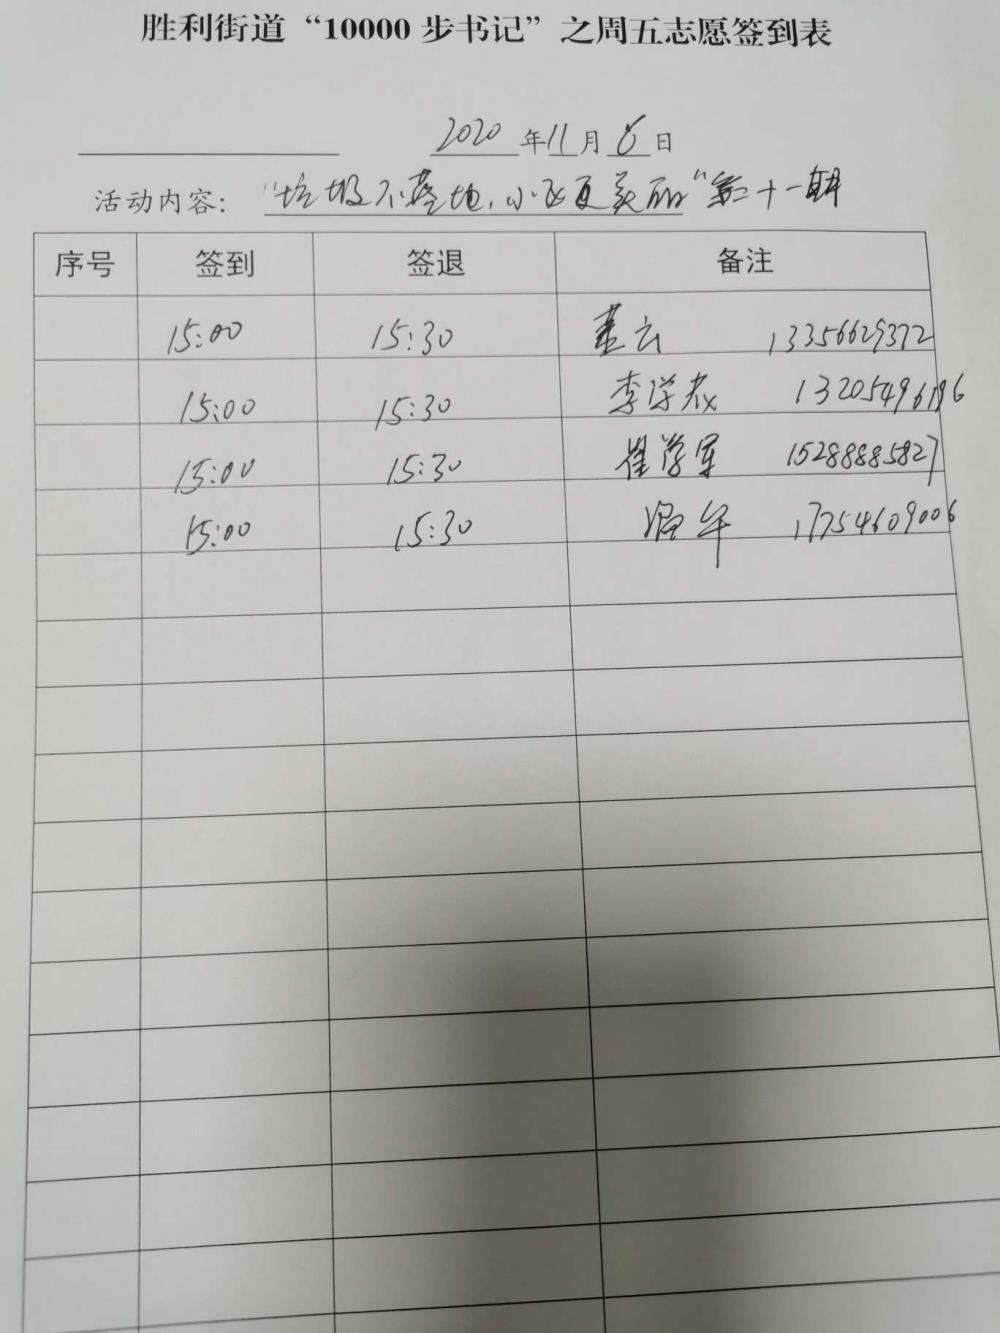 胜利街道“10000步书记”之周五志愿签到表
2020年11月6日
活动内容：“垃圾不落地，小区更美丽”第二十一期
序号 签到 签退 备注
15:00 15:30 董云 13356629372
15:00 15:30 李学 13205496196
15:00 15:30 崔学军 15288885827
15:00 15:30 午 17754609006